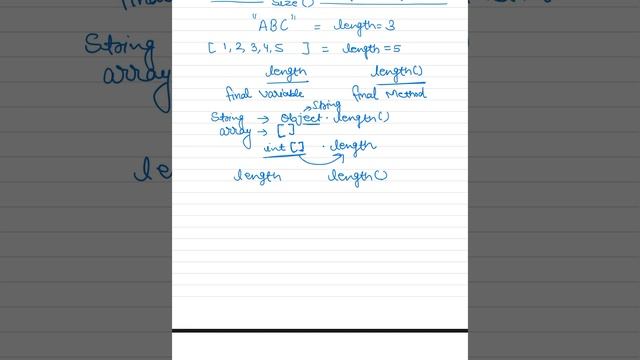 size()
"ABC" = length=3
[ 1, 2, 3, 4, 5 ] = length=5
length length()
final variable final Method
String
String → Object. length()
array → []
int [] . length
length length()
String
array
le